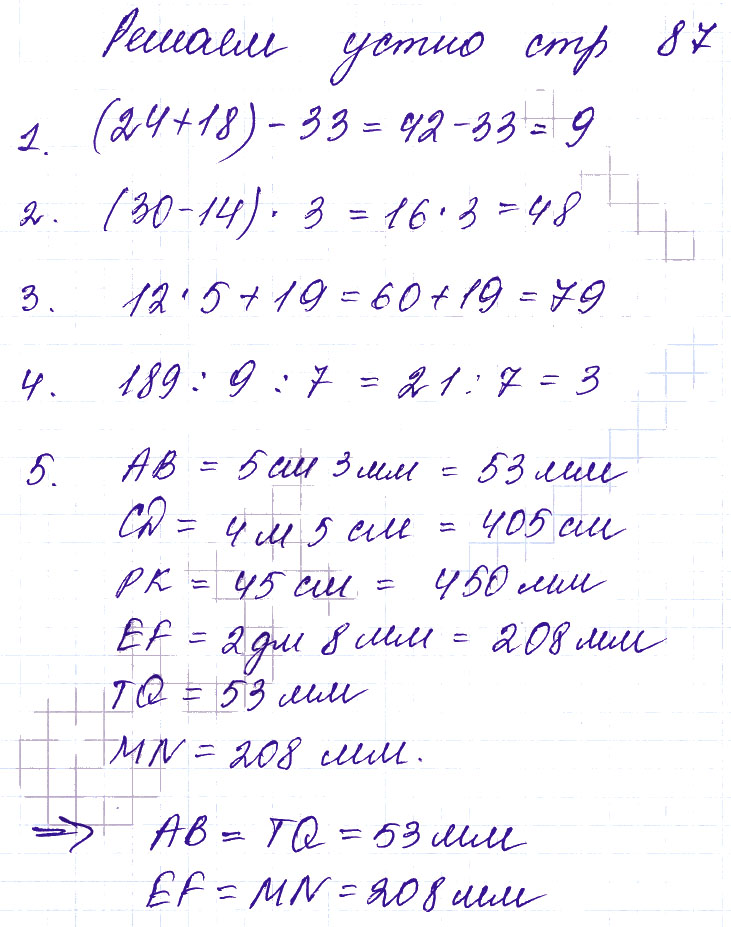 Решаем устно стр 87
1. (24+18) - 33 = 42 - 33 = 9
2. (30-14) · 3 = 16 · 3 = 48
3. 12 · 5 + 19 = 60 + 19 = 79
4. 189 : 9 : 7 = 21 : 7 = 3
5. AB = 5 см 3 мм = 53 мм
CD = 4 м 5 см = 405 см
PK = 45 см = 450 мм
EF = 2 дм 8 мм = 208 мм
TQ = 53 мм
MN = 208 мм.
=> AB = TQ = 53 мм
EF = MN = 208 мм